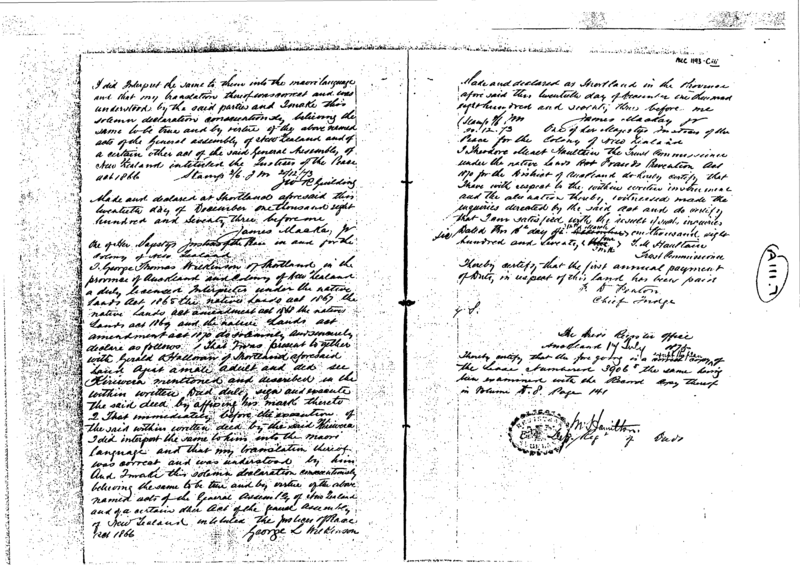 MLC 1193-CIII
I did Interpret the same to them into the maori language
and that my translation thereof was correct and was
understood by the said parties and I make this
solemn declaration conscientiously believing the
same to be true and by virtue of the above named
acts of the General assembly of New Zealand and of
a certain other act of the said General Assembly of
New Zealand intituled the Justices of the Peace
act 1866 Stamp 2/6 20/12/73
Guilding
Made and declared at Shortland aforesaid this
twentieth day of December one thousand eight
hundred and seventy three before me
James Mackay, Jr
One of Her Majestys Justices of the Peace in and for the
Colony of New Zealand
I George Thomas Wilkinson of Shortland in the
province of Auckland in the Colony of New Zealand
a duly licensed Interpreter under the native
Lands Act 1865 the native Lands act 1867 the
native Lands act amendment act 1868 the native
Lands act 1869 and the native Lands act
amendment act 1870 do solemnly and sincerely
declare as follows. 1 That I was present together
with Gerald O'Halloran of Shortland aforesaid
Land Agent a male adult and did see
mentioned and described in the
within written Deed duly sign and execute
the said deed by affixing his mark thereto
2 That immediately before the execution of
the said within written deed by the said
I did interpret the same to him into the maori
language and that my translation thereof
was correct and was understood by him
And I make this solemn declaration conscientiously
believing the same to be true and by virtue of the above
named acts of the General Assembly of New Zealand
and of a certain other Act of the General Assembly
of New Zealand intituled the Justices of Peace
act 1866 George T Wilkinson
Made and declared at Shortland in the Province
aforesaid this twentieth day of December one thousand
eight hundred and seventy three before me
(Stamp 2/6 JM James Mackay Jr
20.12.73 One of Her Majestys Justices of the
Peace for the Colony of New Zealand
I Theodore Haultain the Trust Commissioner
under the native Lands Act Frauds Prevention Act
1870 for the District of Auckland do hereby certify that
there with respect to the within written instrument
and the alienation thereby witnessed made the
inquiries directed by the said Act and do certify
that I am satisfied with the result of such inquiries
Dated this day of one thousand eight
hundred and seventy T. M. Haultain
Trust Commissioner
I hereby certify that the first annual payment
of Duty in respect of this land has been paid
F D Fenton
Chief Judge
The Deeds Register Office
Auckland 17 July
I hereby certify that the foregoing is a correct copy of
the Lease Numbered 3906 the same having
been examined with the Record Copy thereof
in Volume A. 8. Page 141
Hamilton
Reg of Deeds
A 111.7